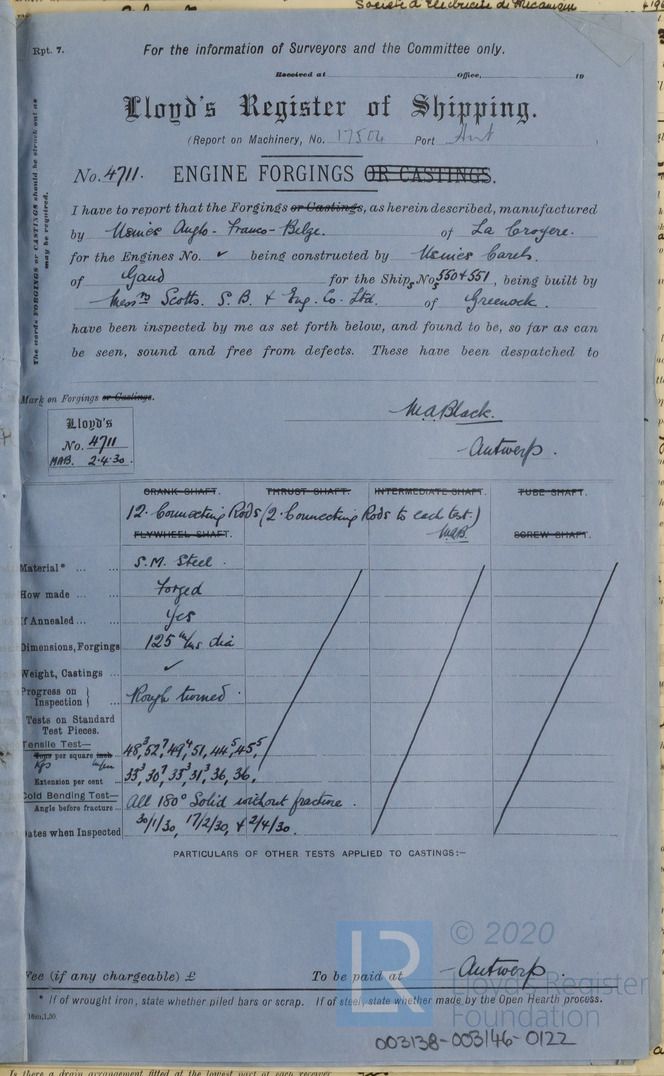 Société d'Electricité de Mécanique
Rpt. 7.
For the information of Surveyors and the Committee only.
Received at Office, 19
Lloyd's Register of Shipping.
(Report on Machinery, No. 17506 Port Ant
No. 4711. ENGINE FORGINGS OR CASTINGS.
The words FORGINGS or CASTINGS should be struck out as
may be required.
I have to report that the Forgings or Castings, as herein described, manufactured
by Usines Anglo-Franco-Belge. of La Croyere.
for the Engines No. ✓ being constructed by Usines Carels.
of Gand for the Ships Nos 550 & 551, being built by
Messrs Scotts. S. B. & Eng. Co. Ltd. of Greenock.
have been inspected by me as set forth below, and found to be, so far as can
be seen, sound and free from defects. These have been despatched to
Mark on Forgings or Castings.
Lloyd's
No. 4711
MAB. 2.4.30.
MABlack.
Antwerp.
CRANK SHAFT. THRUST SHAFT. INTERMEDIATE SHAFT. TUBE SHAFT.
12. Connecting Rods (2. Connecting Rods to each test.)
MAB.
FLYWHEEL SHAFT. SCREW SHAFT.
Material* ... ... S.M. Steel.
How made ... ... Forged
If Annealed ... ... Yes
Dimensions, Forgings 125 m/ms dia
Weight, Castings ... ✓
Progress on Inspection } ... Rough turned.
Tests on Standard
Test Pieces.
Tensile Test—
Tons per square inch 48³, 52⁷, 49⁴, 51, 44⁵, 45⁵
Kgs m/m
Extension per cent ... 33³, 30⁷, 33³, 31³, 36, 36.
Cold Bending Test—
Angle before fracture... All 180° Solid without fracture.
Dates when Inspected 30/1/30, 17/2/30, & 2/4/30.
PARTICULARS OF OTHER TESTS APPLIED TO CASTINGS:—
Fee (if any chargeable) £ To be paid at Antwerp.
* If of wrought iron, state whether piled bars or scrap. If of steel, state whether made by the Open Hearth process.
16m,1,30.
© 2020
LR
Lloyd's Register
Foundation
003138-003146-0122
Is there a drain arrangement fitted at the lowest part of each receiver